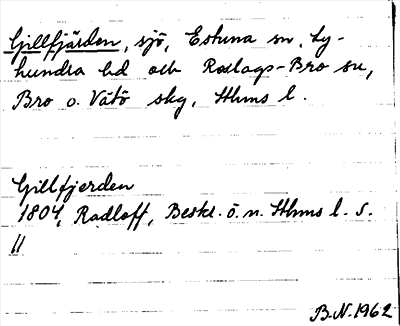 Gillfjärden, sjö, Estuna sn, Ly-
hundra hd och Rodlags-Bro sn,
Bro o. Vätö skg, Sthms l.
Gillfjerden
1804, Radloff, Beskr. ö. n. Sthms l. S.
11
B.N. 1962